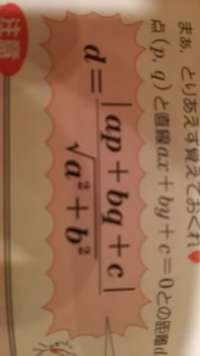 まぁ、とりあえず覚えておくれ♥
点(p, q)と直線ax+by+c=0との距離d
d = |ap + bq + c| / √(a² + b²)
注意